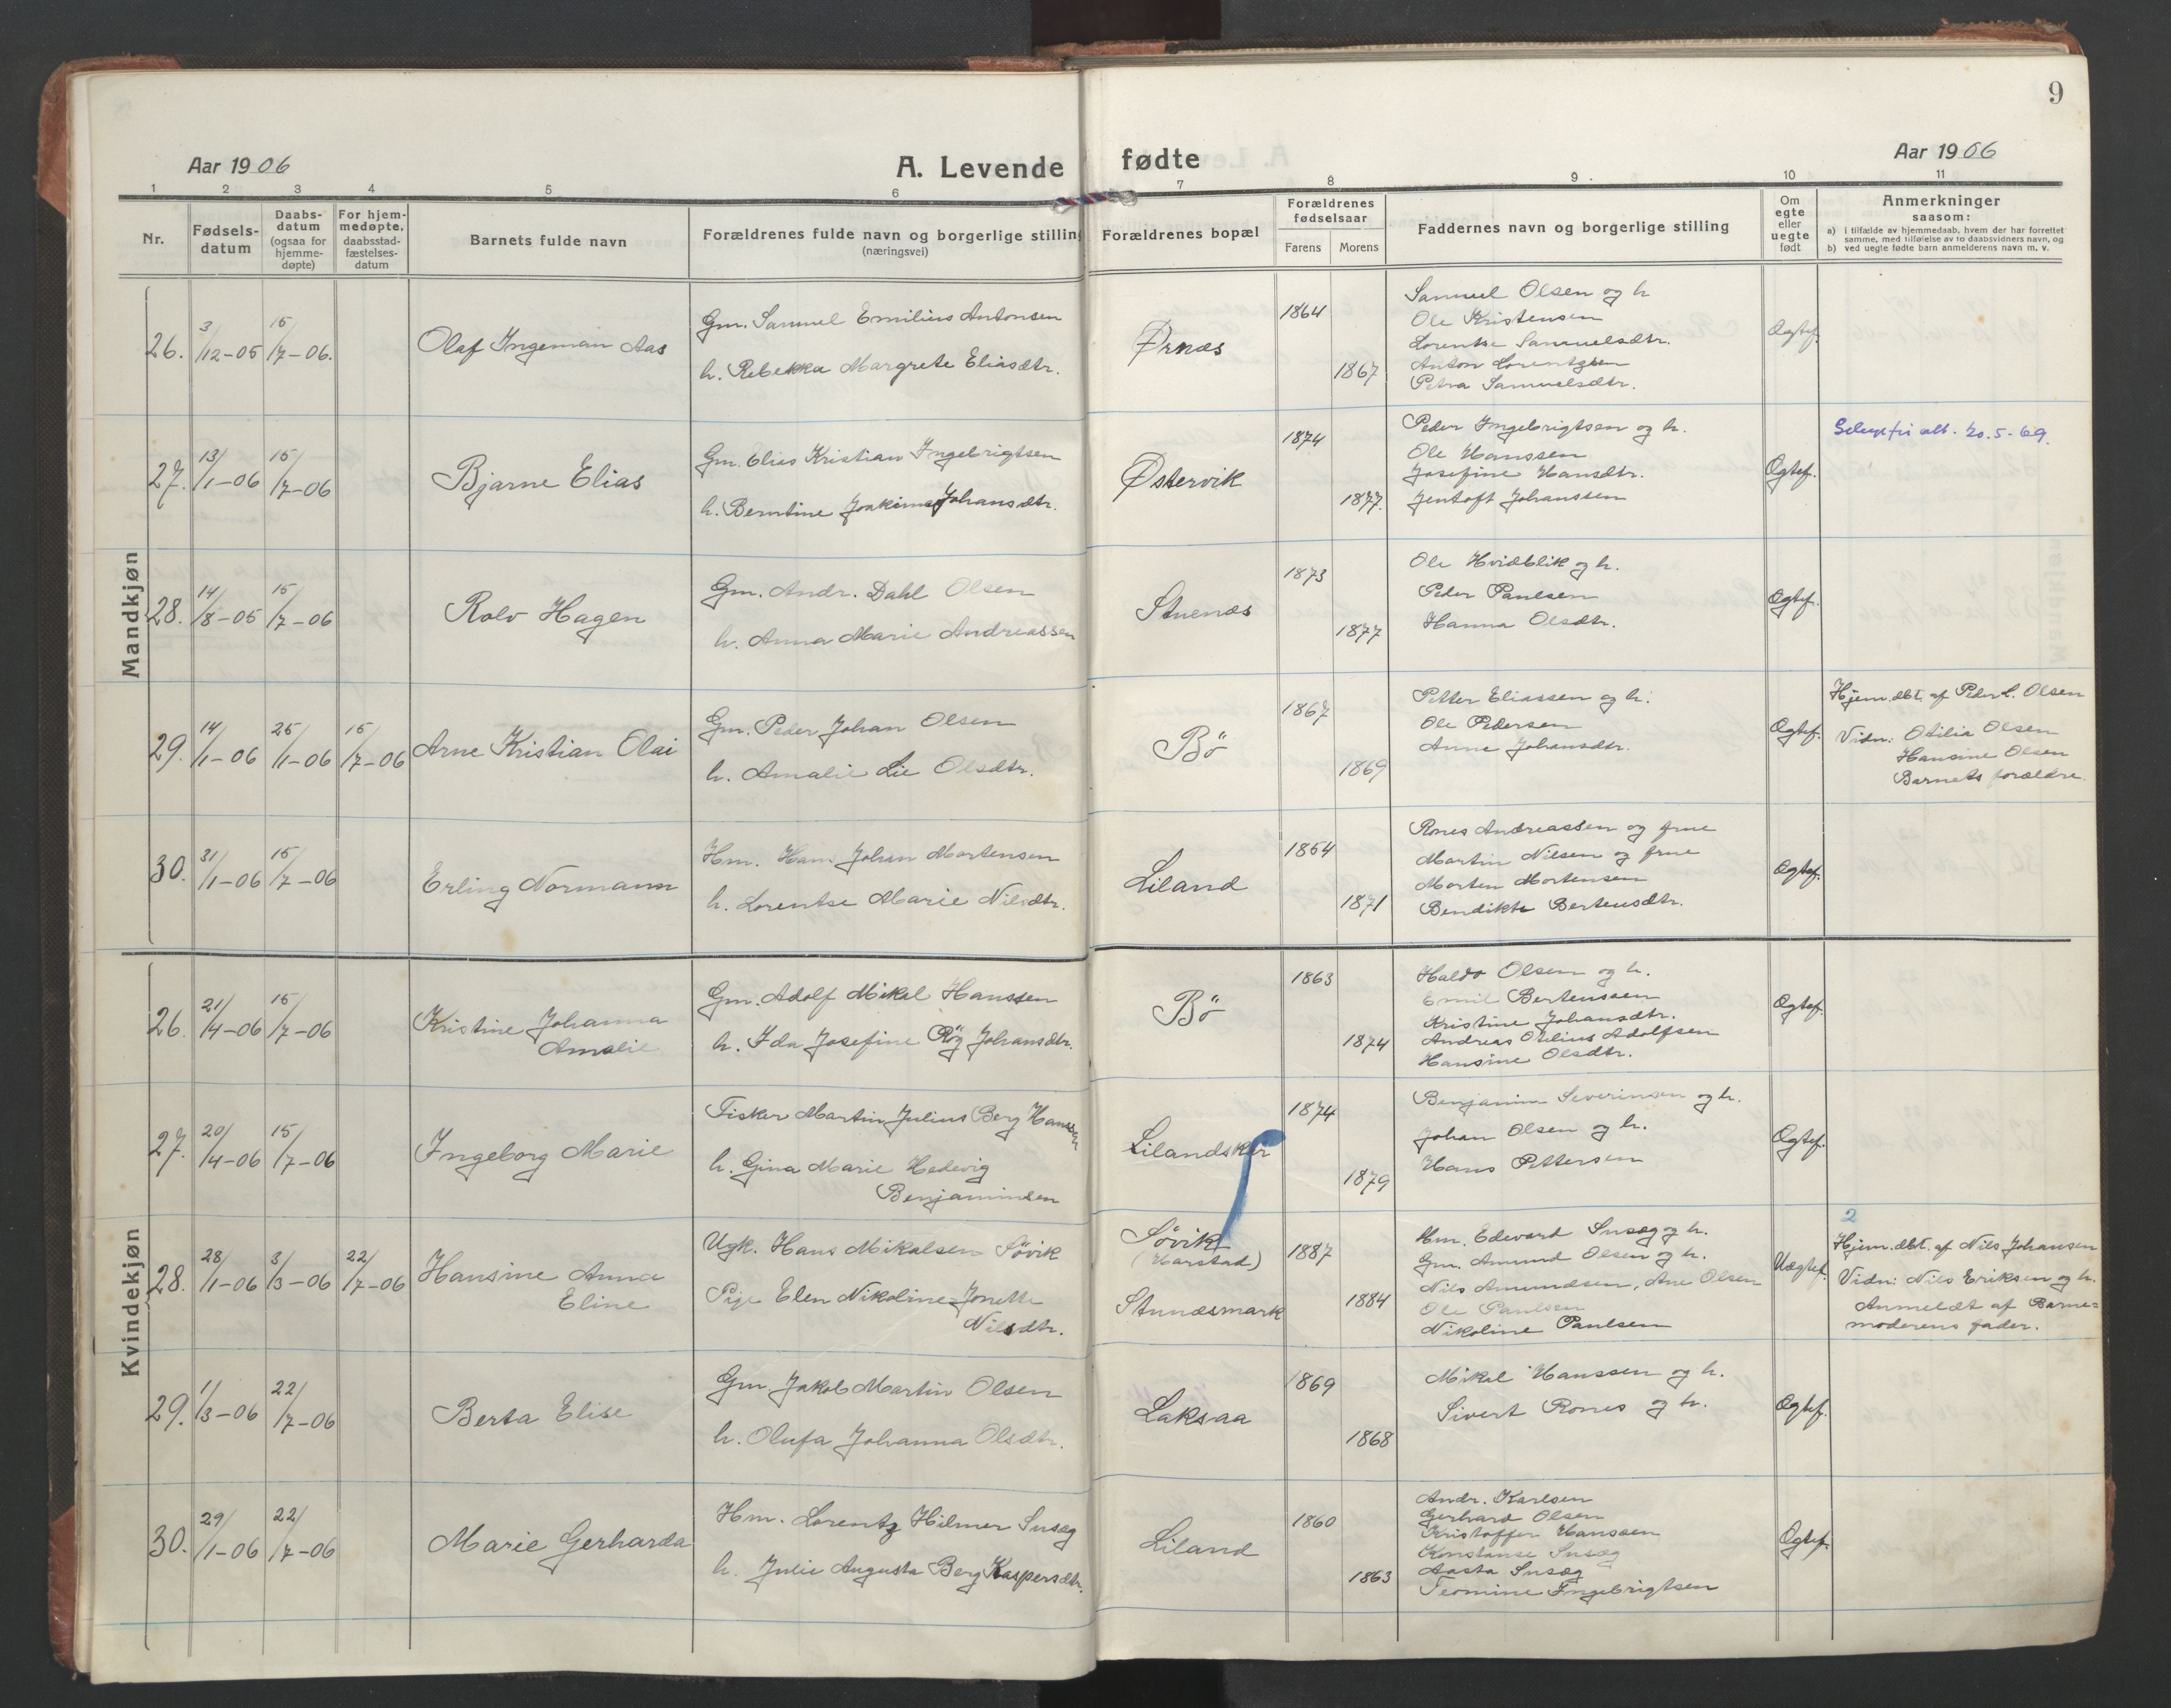 9
Aar 1906
A. Levende fødte
Aar 1906
1 2 3 4 5 6 7 8 9 10 11
Nr.
Fødsels-
datum
Daabs-
datum
(ogsaa for
hjemme-
døpte)
For hjem-
medøpte,
daabsstad-
fæstelses-
datum
Barnets fulde navn
Forældrenes fulde navn og borgerlige stilling
(næringsvei)
Forældrenes bopæl
Forældrenes
fødselsaar
Farens Morens
Faddernes navn og borgerlige stilling
Om
egte
eller
uegte
født
Anmerkninger
saasom:
a) i tilfælde av hjemmedaab, hvem der har forrettet
samme, med tilføielse av to daabsvidners navn, og
b) ved uegte fødte barn anmelderens navn m. v.
Mandkjøn
26. 3/12-05 15/7-06. Olaf Ingeman Aas
Gm. Samuel Emilius Antonsen
h. Rebekka Margrete Eliasdtr.
Ørnæs
1864
1867
Samuel Olsen og h
Ole Kristensen
Lorentse Samuelsdtr.
Anton Lorentzen
Petra Samuelsdtr.
Ægtef.
27. 13/1-06 15/7-06 Bjarne Elias
Gm. Elias Kristian Ingebrigtsen
h. Berntine Joakima Johansdtr.
Østervik
1874
1877.
Peder Ingebrigtsen og h.
Ole Hanssen
Josefine Hansdtr.
Jentoft Johanssen
Ægtef.
att. 20.5-69.
28. 14/8-05 15/7-06 Rolv Hagen
Gm. Andr. Dahl Olsen
h. Anna Marie Andreassen
Stuenæs
1873
1877
Ole Hvidblik og h.
Peder Paulsen
Hanna Olsdtr.
Ægtef.
29. 14/1-06 25/1-06 15/7-06 Arne Kristian Olai
Gm. Peder Johan Olsen
h. Amalie Lie Olsdtr.
Bö
1867
1869
Petter Eliassen og h.
Ole Pedersen
Anne Johansdtr.
Ægtef.
Hjem.dbt. af Peder L. Olsen
Vidn: Otilia Olsen
Hansine Olsen
Barnets forældre.
30. 31/1-06 15/7-06 Erling Normann
Hm. Hans Johan Mortensen
h. Lorentse Marie Nilsdtr.
Liland
1864
1871
Rones Andreassen og frue
Martin Nilsen og frue
Morten Mortensen
Bendikte Bertensdtr.
Ægtef.
Kvindekjøn
26. 21/4-06 15/7-06 Kristine Johanna
Amalie
Gm. Adolf Mikal Hanssen
h. Ida Josefine Röy Johansdtr.
Bö
1863
1874
Haldo Olsen og h.
Emil Bertenssen
Kristine Johansdtr.
Andreas Otelius Adolfsen
Hansine Olsdtr.
Ægtef.
27. 20/4-06 15/7-06 Ingeborg Marie
Fisker Martin Julius Berg Hanssen
h. Gina Marie Hedevig
Benjaminsen
Lilandskar
1874
1879
Benjamin Severinsen og h.
Johan Olsen og h.
Hans Pettersen
Ægtef.
28. 28/1-06 3/3-06 22/7-06 Hansine Anna
Eline
Ugk. Hans Mikalsen Sövik
Pige Elen Nikoline Jonette
Nilsdtr.
Sövik
(Harstad)
Stunæsmark
1887
1884
Hm. Edevard Susæg og h.
Gm. Amund Olsen og h.
Nils Amundsen, Ane Olsen
Ole Paulsen
Nikoline Paulsen
Uægtef.
2
Hjem.dbt. af Nils Johansen
Vidn: Nils Eriksen og h.
Anmeldt af Barne=
moderens fader.
29. 1/3-06 22/7-06 Berta Elise
Gm. Jakob Martin Olsen
h. Olufa Johanna Olsdtr.
Laksaa
1869
1868
Mikal Hanssen og h.
Sivert Rones og h.
Ægtef.
30. 29/1-06 22/7-06 Marie Gerharda
Hm. Lorentz Hilmer Susæg
h. Julie Augusta Berg Kaspersdtr.
Liland
1860
1863
Andr. Karlsen
Gerhard Olsen
Kristoffer Hanssen
Konstanse Susæg
Aasta Susæg
Teomine Ingebrigtsen
Ægtef.